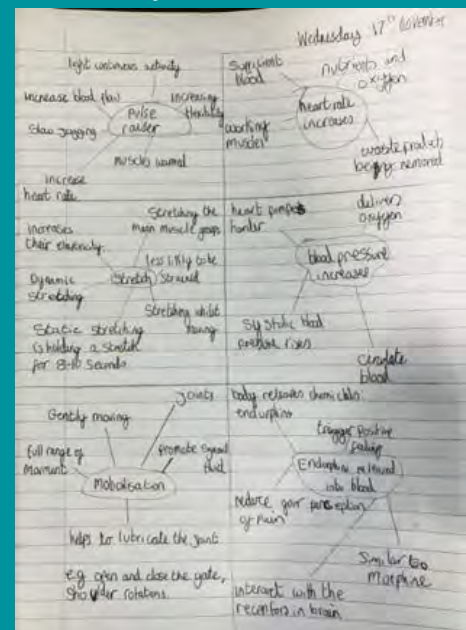 Wednesday 17th November
light continuous activity
increase blood flow
increasing flexibility
Pulse raiser
Slow jogging
muscles warmed
increase heart rate
Sufficient blood
nutrients and oxygen
heart rate increases
working muscles
waste products being removed
Stretching the main muscle groups
increases their elasticity
less likely to be strained
Stretch
Dynamic stretching
Stretching whilst moving
Static stretching is holding a stretch for 8-10 seconds
heart pumps harder
delivers oxygen
blood pressure increases
Systolic blood pressure rises
circulate blood
Gently moving
joints
full range of movment
promote synovial fluid
Mobalisation
helps to lubricate the joint
e.g open and close the gate,
Shoulder rotations.
body releases chemicals:
endorphins
trigger positive feeling
Endorphins released into blood
reduce your perception of pain
Similar to Morphine
interact with the
receptors in brain